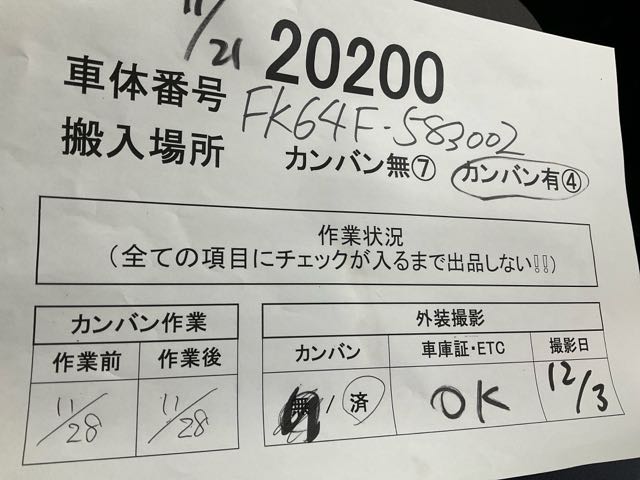 11/21
20200
車体番号 FK64F-583002
搬入場所 カンバン無⑦ カンバン有④
作業状況
(全ての項目にチェックが入るまで出品しない!!)
カンバン作業 外装撮影
作業前 作業後 カンバン 車庫証・ETC 撮影日
11/28 11/28 無/済 OK 12/3